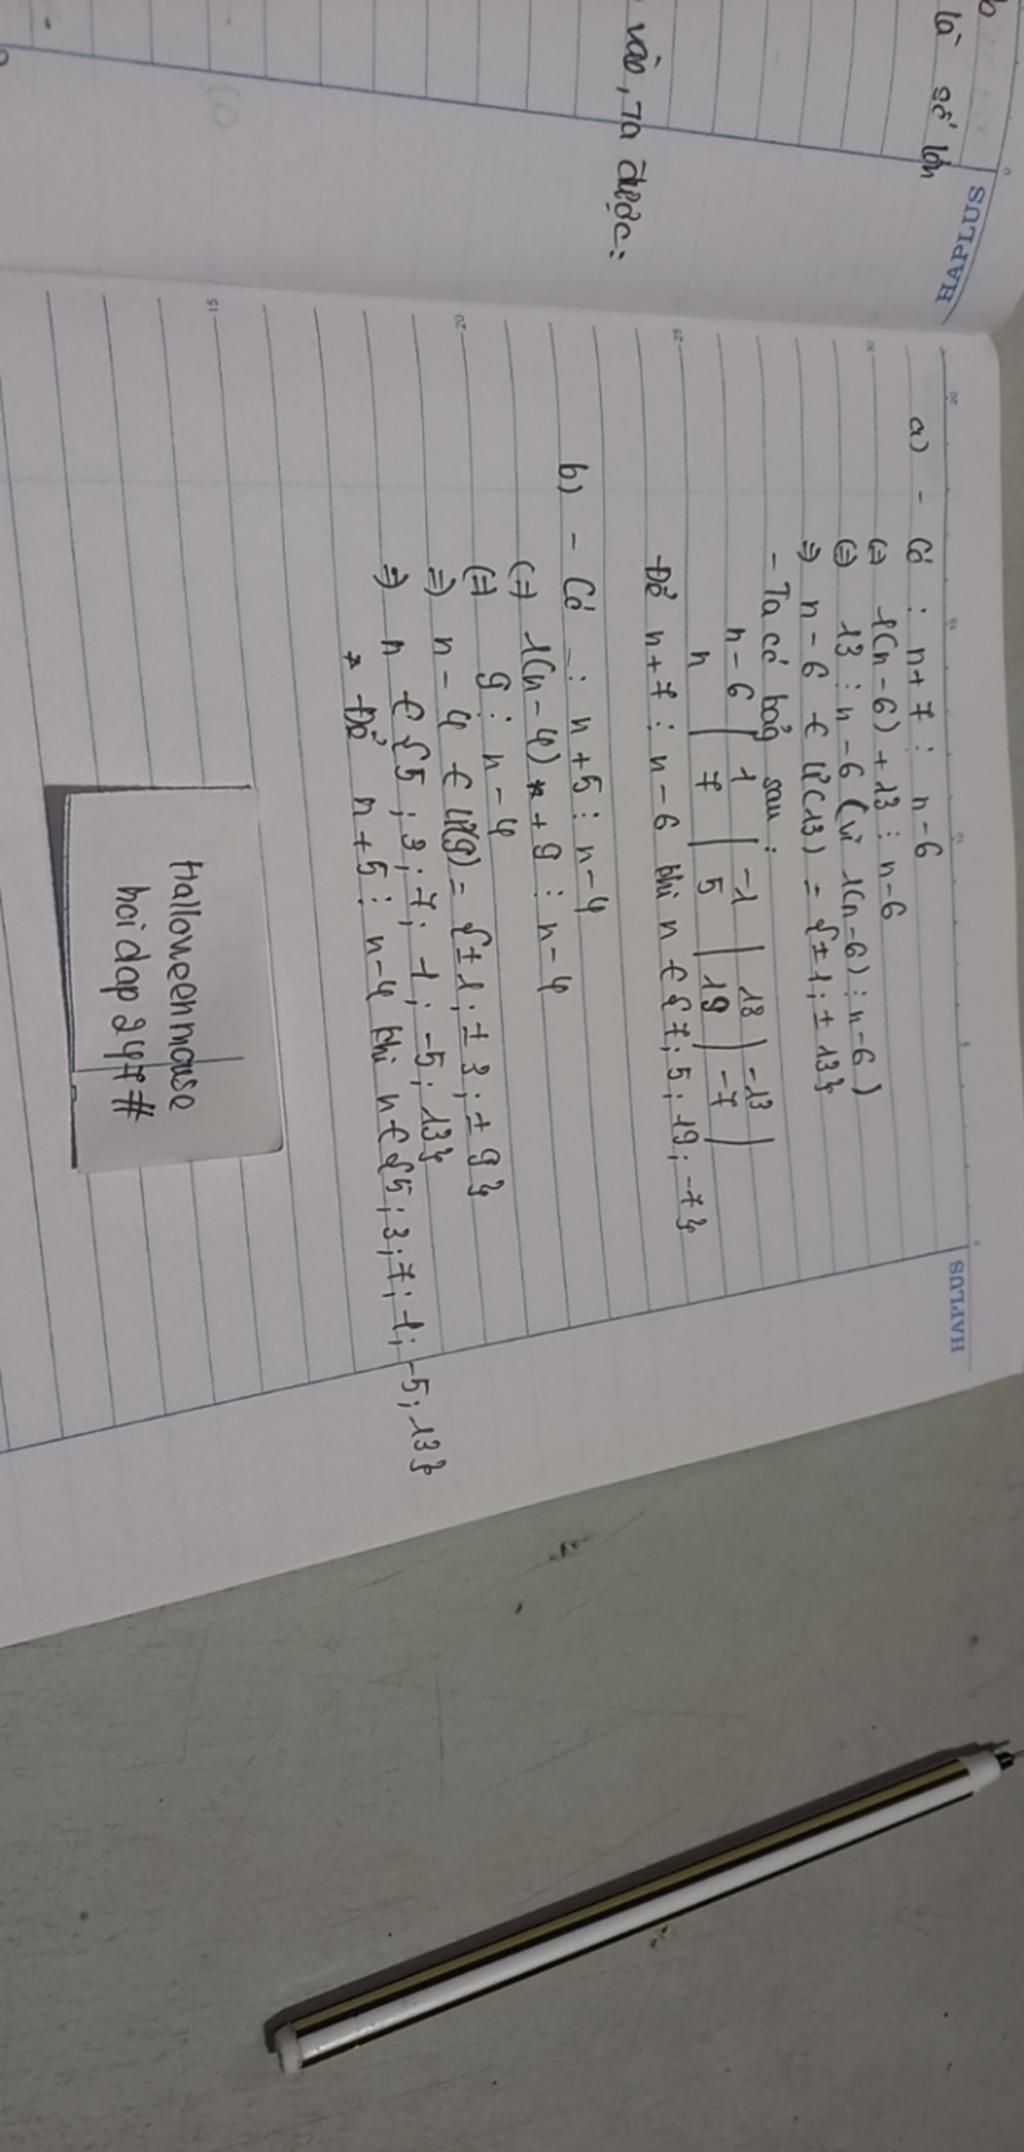 là số lớn
vào, Ta được:
HAPLUS
HAPLUS
a) - Có : n+7 ⋮ n-6
(=) 1(n-6) + 13 ⋮ n-6
(=) 13 ⋮ n-6 (vì 1(n-6) ⋮ n-6)
=) n-6 ∈ Ư(13) = {±1; ±13}
- Ta có bảg sau:
n-6 | 1 | -1 | 13 | -13 |
n | 7 | 5 | 19 | -7 |
Để n+7 ⋮ n-6 khi n ∈ {7; 5; 19; -7}
b) - Có : n+5 ⋮ n-4
(=) 1(n-4) + 9 ⋮ n-4
(=) 9 ⋮ n-4
=) n-4 ∈ Ư(9) = {±1; ±3; ±9}
=) n ∈ {5; 3; 7; 1; -5; 13}
* Để n+5 ⋮ n-4 khi n ∈ {5; 3; 7; 1; -5; 13}
Halloweenmouse
hoidap247#